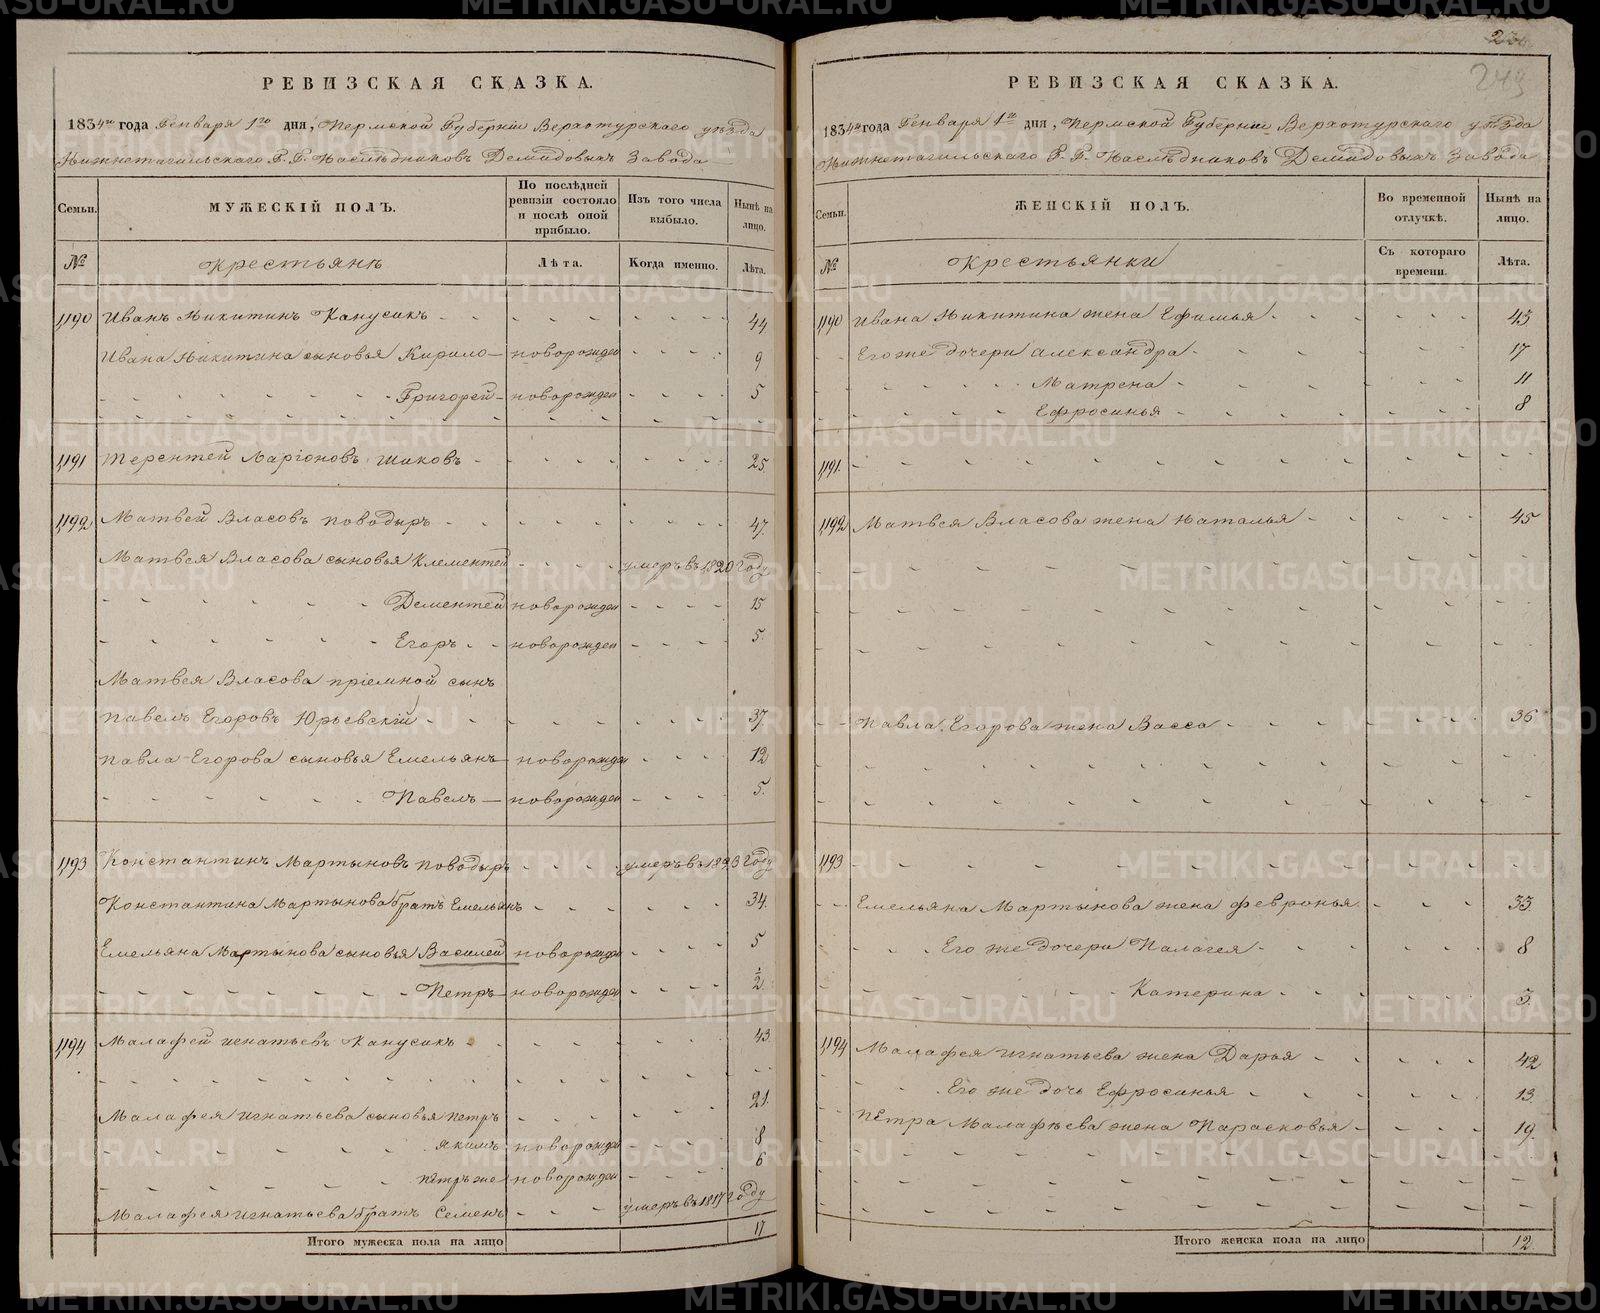 РЕВИЗСКАЯ СКАЗКА.
1834го года Генваря 1го дня, Пермской Губернiи Верхотурскаго уѣзда
Нижнотагильскаго Г. Г. Наслѣдниковъ Демидовыхъ Завода
Семьи.
МУЖЕСКІЙ ПОЛЪ.
По послѣдней ревизіи состояло и послѣ оной прибыло.
Изъ того числа выбыло.
Нынѣ на лицо.
№
Крестьянѣ
Лѣта.
Когда именно.
Лѣта.
1190 Иванъ Никитинъ Канусикъ 44
Ивана Никитина сыновья Кирило новорожден 9
Григорей новорожден 5
1191 Терентей Ларіоновъ Шиковъ 25
1192 Матвей Власовъ Поводыръ 47
Матвея Власова сыновья Клементей умеръ въ 1820 году
Дементей новорожден 15
Егоръ новорожден 5
Матвея Власова пріемной сынъ
Павелъ Егоровъ Юрьевскій 37
Павла Егорова сыновья Емельянъ новорожден 12
Павелъ новорожден 5
1193 Константинъ Мартыновъ Поводыръ умеръ въ 1823 году
Константина Мартынова братъ Емельянъ 34
Емельяна Мартынова сыновья Василей новорожден 5
Петръ новорожден ½
1194 Малафей Игнатьевъ Канусикъ 43
Малафея Игнатьева сыновья Петръ 21
Якимъ новорожден 8
Петръ же новорожден 6
Малафея Игнатьева братъ Семенъ умеръ въ 1817 году
Итого мужеска пола на лицо 17
249
РЕВИЗСКАЯ СКАЗКА.
1834го года Генваря 1го дня, Пермской Губернiи Верхотурскаго уѣзда
Нижнетагильскаго Г. Г. Наслѣдниковъ Демидовыхъ Завода
Семьи.
ЖЕНСКІЙ ПОЛЪ.
Во временной отлучкѣ.
Нынѣ на лицо.
№
Крестьянки
Съ котораго времени.
Лѣта.
1190 Ивана Никитина жена Ефимья 43
Его же дочери Александра 17
Матрена 11
Ефросинья 8
1191
1192 Матвея Власова жена Наталья 45
Павла Егорова жена Васса 36
1193
Емельяна Мартынова жена Февронья 33
Его же дочери Палагея 8
Катерина 3
1194 Малафея Игнатьева жена Дарья 42
Его же дочь Ефросинья 13
Петра Малафѣева жена Парасковья 19
Итого женска пола на лицо 12
METRIKI.GASO-URAL.RU